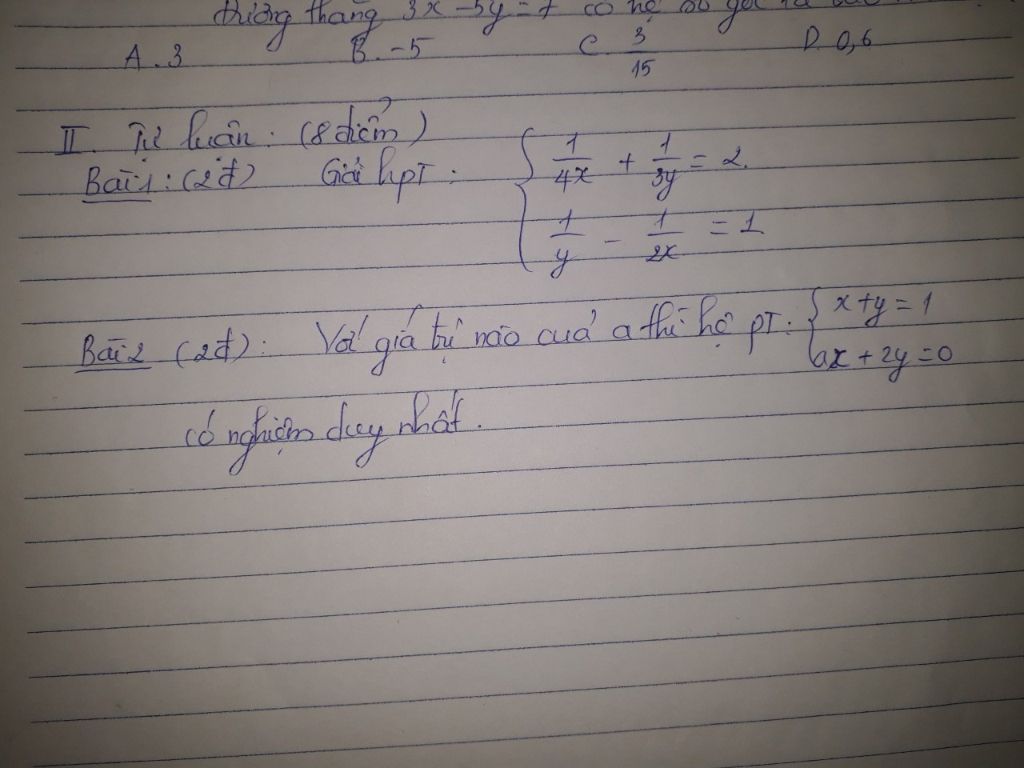 đường thẳng 3x - 5y = 7 có hệ số góc là
A. 3 B. -5 C. 3/15 D. 0,6
II. Tự luận: (8 điểm)
Bài 1: (2đ) Giải hpT: { 1/4x + 1/3y = 2.
1/y - 1/2x = 1
Bài 2 (2đ): Với giá trị nào cuả a thì hệ pT: { x + y = 1
ax + 2y = 0
có nghiệm duy nhất.